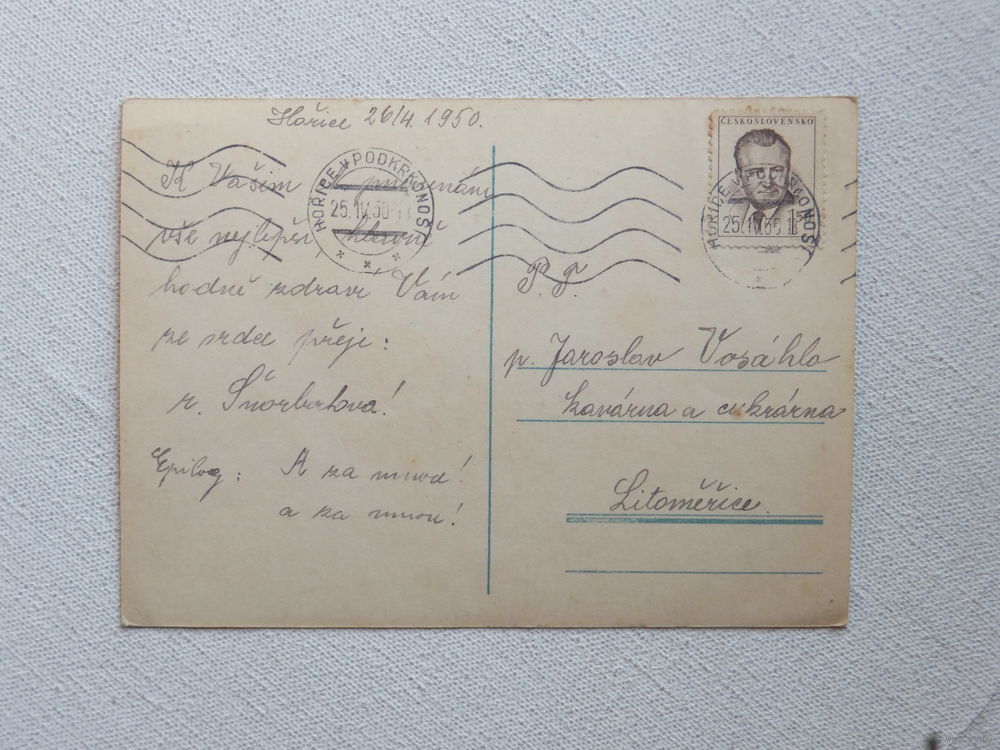 Hořice 26/4. 1950.
K Vašim
vše nejlepší, hlavně
hodně zdraví Vám
ze srdce přeje:
r. Šnorbertova!
Epilog: A za mnou!
a za mnou!
HOŘICE V PODKRKONOŠÍ
25.IV.50
ČESKOSLOVENSKO
HOŘICE V PODKRKONOŠÍ
25.IV.50
P. p.
p. Jaroslav Vosáhlo
kavárna a cukrárna
Litoměřice.